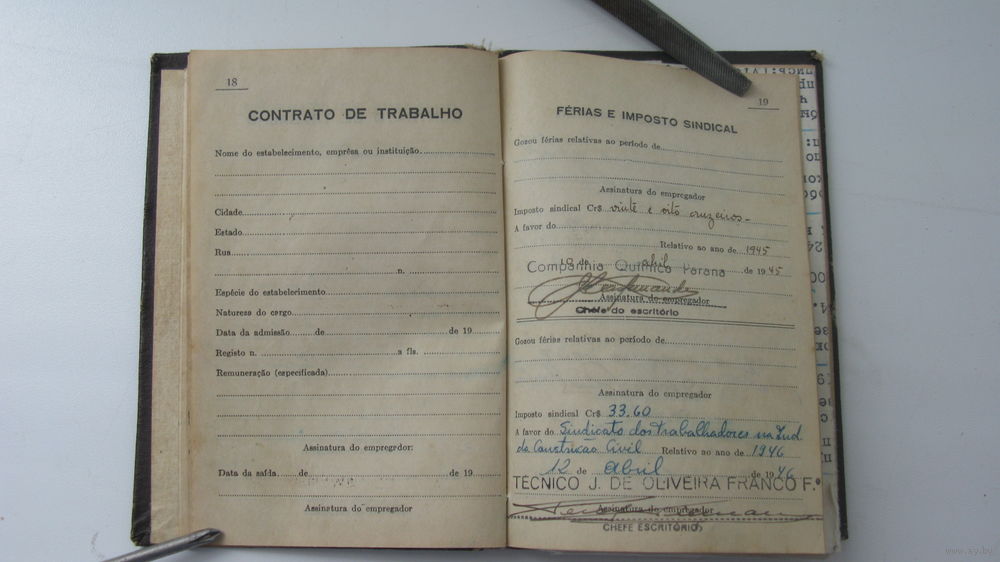 18
CONTRATO DE TRABALHO
Nome do estabelecimento, emprêsa ou instituição
Cidade
Estado
Rua
n.
Espécie do estabelecimento
Natureza do cargo
Data da admissão de de 19
Registo n. a fls.
Remuneração (especificada)
Assinatura do empregador
Data da saída de de 19
Assinatura do empregador
19
FÉRIAS E IMPOSTO SINDICAL
Gozou férias relativas ao período de
Assinatura do empregador
Imposto sindical Cr$ vinte e oito cruzeiros
A favor do
Relativo ao ano de 1945
de abril de 1945
Companhia Química Parana
Assinatura do empregador
Chefe do escritório
Gozou férias relativas ao período de
Assinatura do empregador
Imposto sindical Cr$ 33.60
A favor do Sindicato dos trabalhadores na Ind.
da Construcão Civil Relativo ao ano de 1946
12 de abril de 1946
TÉCNICO J. DE OLIVEIRA FRANCO F.º
Assinatura do empregador
CHEFE ESCRITÓRIO
www.ay.by